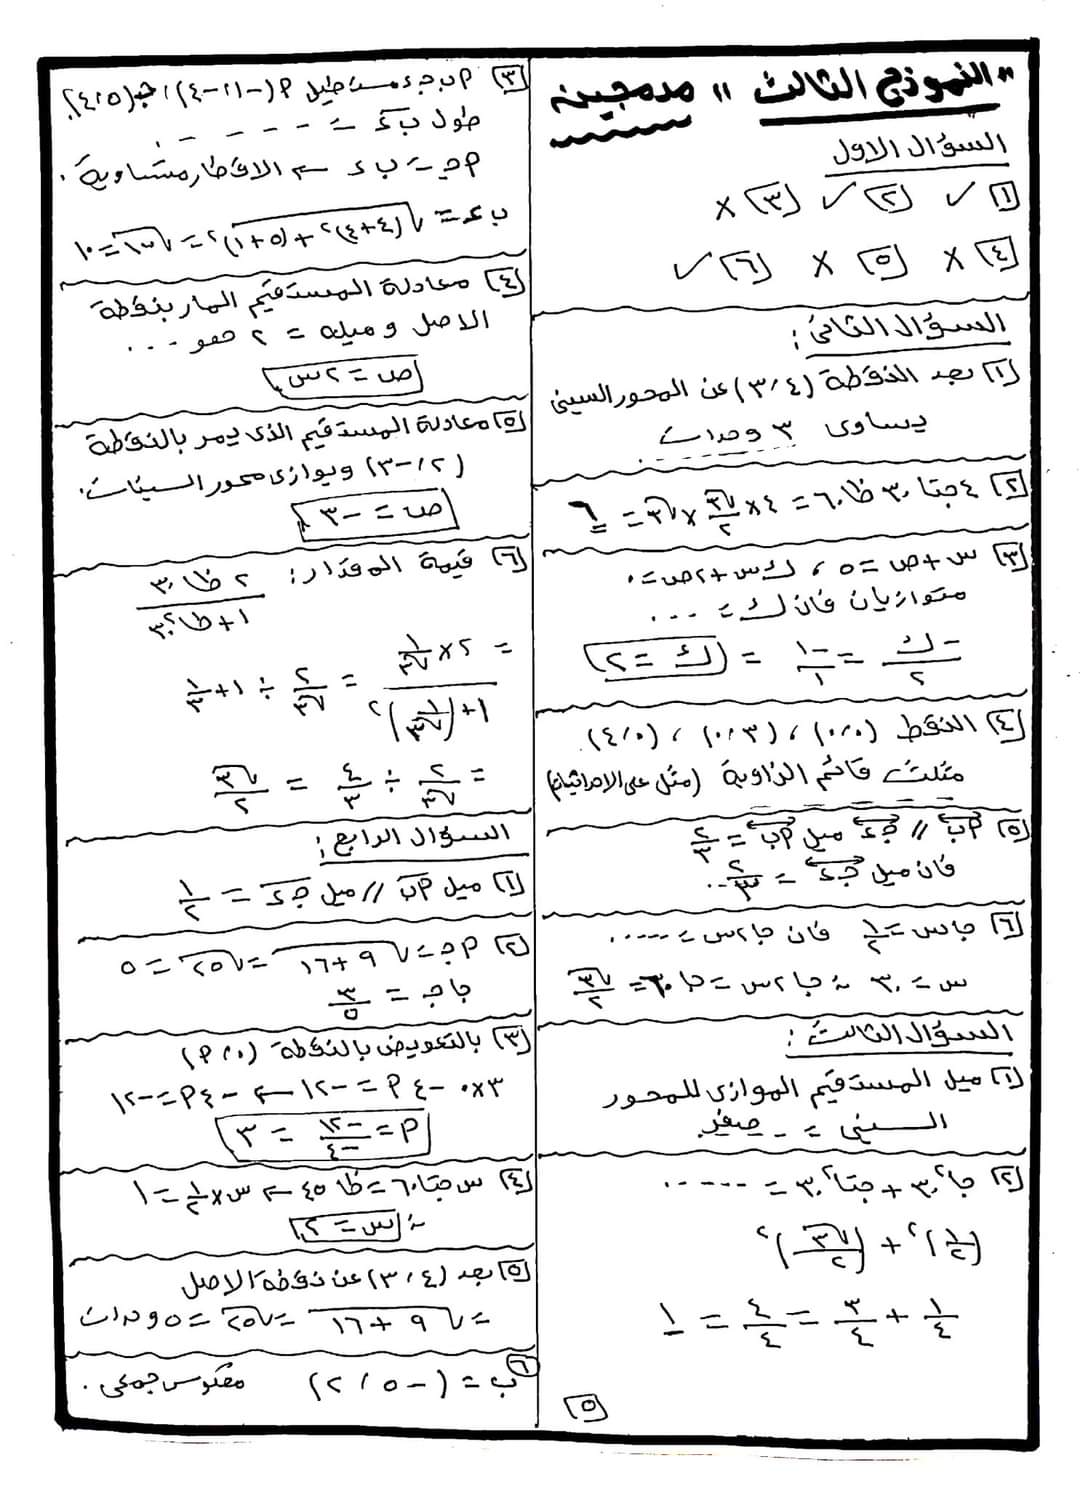 "النموذج الثالث" مدمجين
السؤال الاول
١ ✓ ٢ ✓ ٣ ×
٤ × ٥ × ٦ ✓
السؤال الثانى :
١ بعد النقطة (٣،٤) عن المحور السينى
يساوى ٣ وحدات
٢ ٤ جتا ٣٠ ظا ٦٠ = ٤ × √٣/٢ × √٣ = ٦
٣ س + ص = ٥ ، ك س + ٢ص = ٠
متوازيان فان ك = ...
-ك/٢ = -١/١ = ك = ٢
٤ النقط (٠،٠) ، (٠،٣) ، (٤،٠)
مثلث قائم الزاوية (مثل على الاحداثيات)
٥ أب // جـء ميل أب = ٢/٣
فان ميل جـء = ٢/٣ ..
٦ جاس = ١/٢ فان جا ٢س = .....
س = ٣٠ ∴ جا ٢س = جا ٦٠ = √٣/٢
السؤال الثالث :
١ ميل المستقيم الموازى للمحور
السينى = صفر
٢ جا²٣٠ + جتا²٣٠ = .....
(١/٢)² + (√٣/٢)²
١/٤ + ٣/٤ = ٤/٤ = ١
٣ أ ب جـ ء مستطيل أ (-١،-٤) ، جـ (٤،٥)
طول بء = - - - -
أجـ = ب ء ← الاقطار متساوية .
بء = √(٤+٤)² + (٥+١)² = √١٠٠ = ١٠
٤ معادلة المستقيم المار بنقطة
الاصل وميله = ٢ هو ...
ص = ٢س
٥ معادلة المستقيم الذى يمر بالنقطة
(٢،-٣) ويوازى محور السينات .
ص = -٣
٦ قيمة المقدار : ٢ ظا ٣٠ / ١ + ظا²٣٠
= ٢ × ١/√٣ / ١ + (١/√٣)² = ٢/√٣ ÷ ١ + ١/٣
= ٢/√٣ ÷ ٤/٣ = √٣/٢
السؤال الرابع :
١ ميل أب // ميل جـء = ١/٢
٢ أجـ = √٩ + ١٦ = √٢٥ = ٥
جا جـ = ٣/٥
٣ بالتعويض بالنقطة (٠،أ)
٣×٠ - ٤أ = -١٢ ← -٤أ = -١٢
أ = -١٢/-٤ = ٣
٤ س جتا ٦٠ = ظا ٤٥ ← س × ١/٢ = ١
∴ س = ٢
٥ بعد (٣،٤) عن نقطة الاصل
= √٩ + ١٦ = √٢٥ = ٥ وحدات
٦ ب = (-٢،٥) معكوس جمعى .
٥